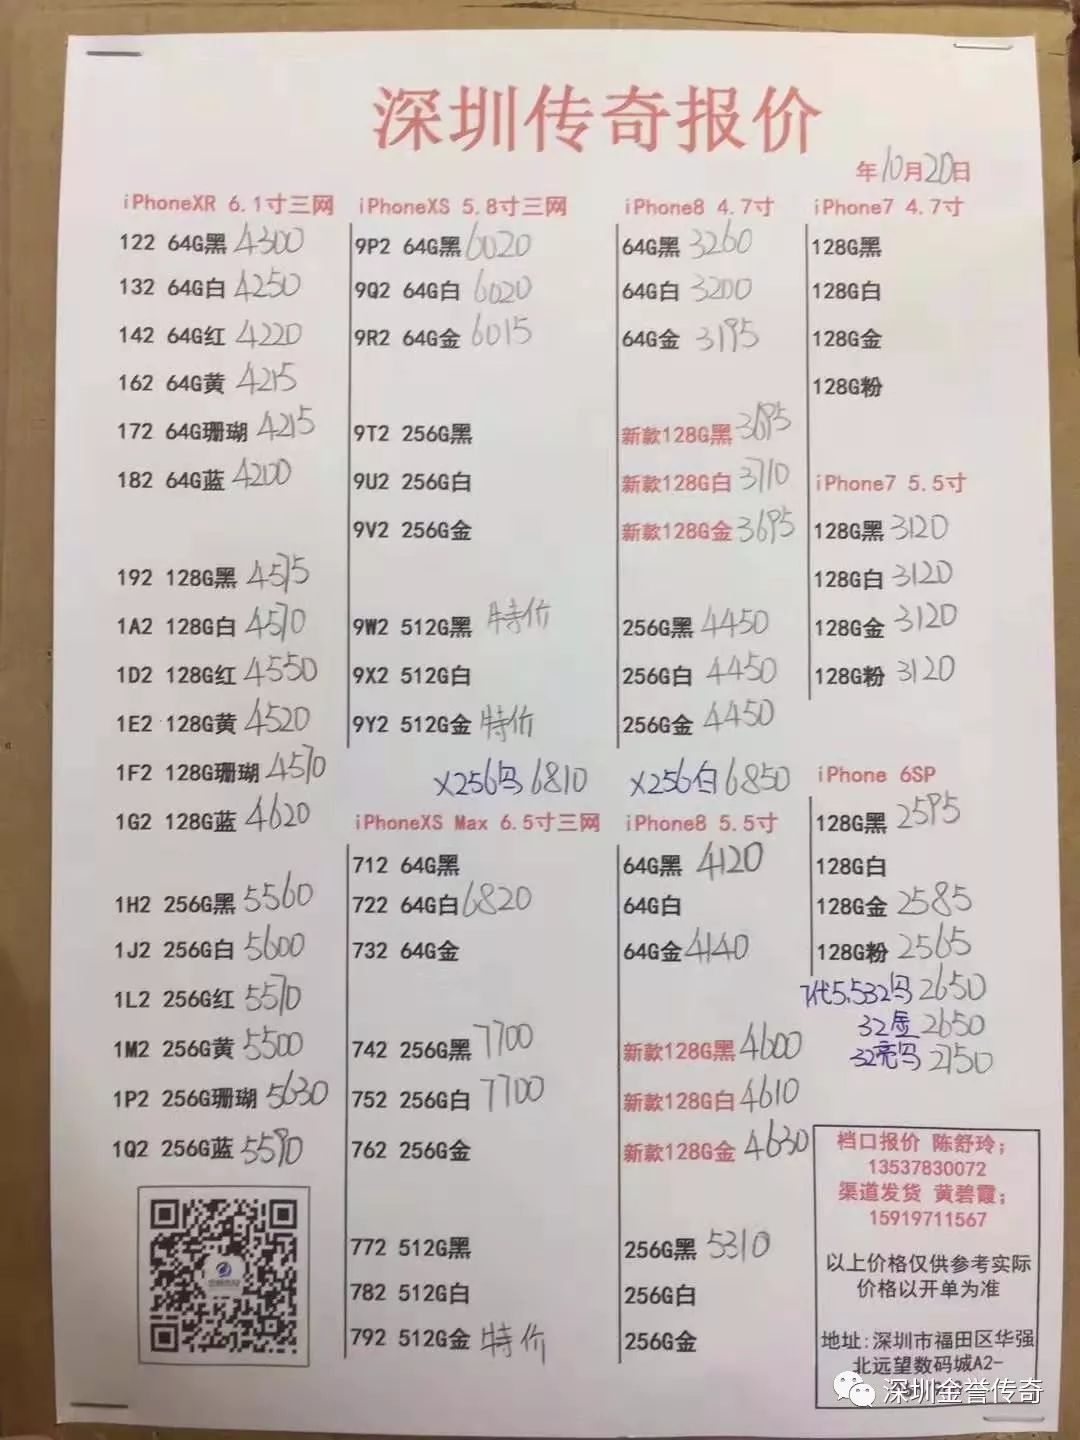 深圳传奇报价
年10月20日
iPhoneXR 6.1寸三网
122 64G黑 4300
132 64G白 4250
142 64G红 4220
162 64G黄 4215
172 64G珊瑚 4215
182 64G蓝 4200
192 128G黑 4575
1A2 128G白 4570
1D2 128G红 4550
1E2 128G黄 4520
1F2 128G珊瑚 4570
1G2 128G蓝 4620
1H2 256G黑 5560
1J2 256G白 5600
1L2 256G红 5570
1M2 256G黄 5500
1P2 256G珊瑚 5630
1Q2 256G蓝 5590
iPhoneXS 5.8寸三网
9P2 64G黑 6020
9Q2 64G白 6020
9R2 64G金 6015
9T2 256G黑
9U2 256G白
9V2 256G金
9W2 512G黑 特价
9X2 512G白
9Y2 512G金 特价
X256马 6810
iPhoneXS Max 6.5寸三网
712 64G黑
722 64G白 6820
732 64G金
742 256G黑 7700
752 256G白 7700
762 256G金
772 512G黑
782 512G白
792 512G金 特价
iPhone8 4.7寸
64G黑 3260
64G白 3200
64G金 3195
新款128G黑 3695
新款128G白 3710
新款128G金 3695
256G黑 4450
256G白 4450
256G金 4450
X256白 6850
iPhone8 5.5寸
64G黑 4120
64G白
64G金 4140
新款128G黑 4600
新款128G白 4610
新款128G金 4630
256G黑 5310
256G白
256G金
iPhone7 4.7寸
128G黑
128G白
128G金
128G粉
iPhone7 5.5寸
128G黑 3120
128G白 3120
128G金 3120
128G粉 3120
iPhone 6SP
128G黑 2595
128G白
128G金 2585
128G粉 2565
7代5.532马 2650
32金 2650
32亮马 2750
档口报价 陈舒玲；
13537830072
渠道发货 黄碧霞；
15919711567
以上价格仅供参考实际
价格以开单为准
地址:深圳市福田区华强
北远望数码城A2-
深圳金誉传奇